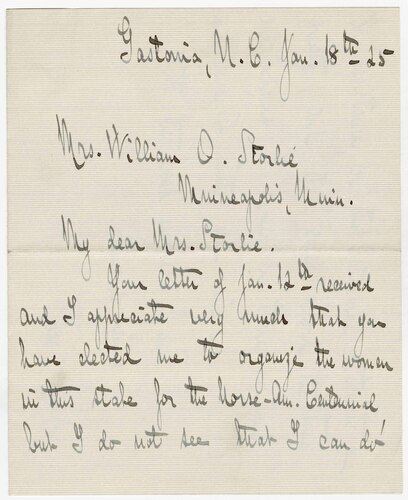 Gastonia, N.C. Jan. 18th-25
Mrs. William O. Storlié
Minneapolis, Minn.
My dear Mrs. Storlie.
Your letter of Jan. 12th received
and I appreciate very much that you
have elected me to organize the women
in this state for the Norse-Am. Centennial
but I do not see that I can do